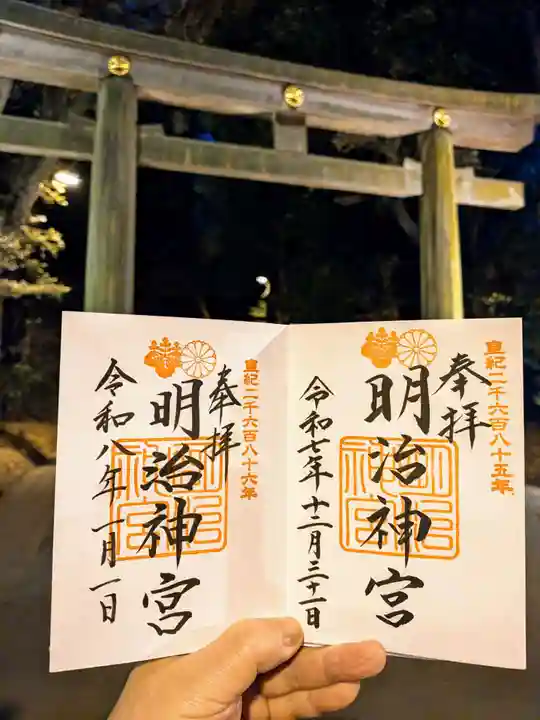 皇紀二千六百八十五年
奉拝
明治神宮
令和七年十二月三十一日
皇紀二千六百八十六年
奉拝
明治神宮
令和八年一月一日